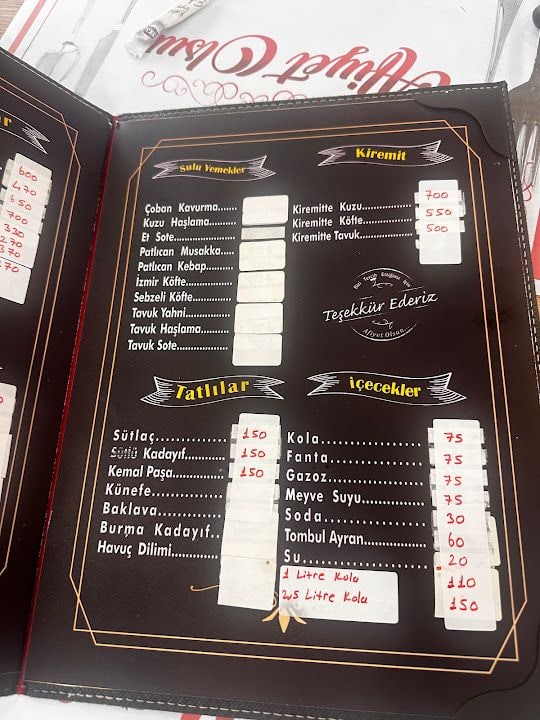 Afiyet Olsun
er
600
470
650
700
330
270
370
270
Sulu Yemekler
Çoban Kavurma.......
Kuzu Haşlama........
Et Sote..................
Patlıcan Musakka....
Patlıcan Kebap........
İzmir Köfte.............
Sebzeli Köfte..........
Tavuk Yahni............
Tavuk Haşlama........
Tavuk Sote..............
Kiremit
Kiremitte Kuzu....... 700
Kiremitte Köfte....... 550
Kiremitte Tavuk....... 500
Teşekkür Ederiz
Afiyet Olsun...
Tatlılar
Sütlaç............... 150
Sütlü Kadayıf........ 150
Kemal Paşa.......... 150
Künefe..............
Baklava.............
Burma Kadayıf..
Havuç Dilimi............
içecekler
Kola.................. 75
Fanta................. 75
Gazoz................ 75
Meyve Suyu............. 75
Soda.................. 30
Tombul Ayran............ 60
Su..................... 20
1 Litre Kola 110
2,5 Litre Kola 150